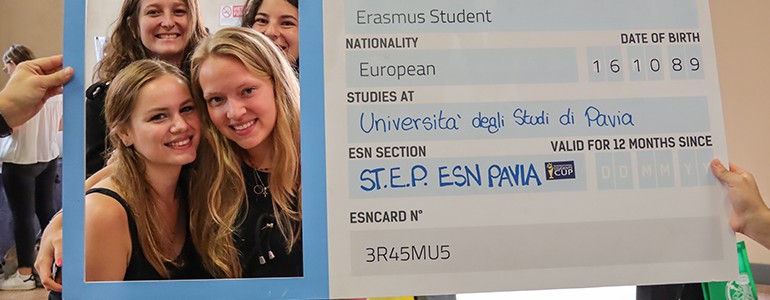 Erasmus Student
NATIONALITY
European
DATE OF BIRTH
16 10 89
STUDIES AT
Universita' degli Studi di Pavia
ESN SECTION
ST.E.P. ESN PAVIA
CUP
VALID FOR 12 MONTHS SINCE
DD MM YY
ESNCARD N°
3R45MU5